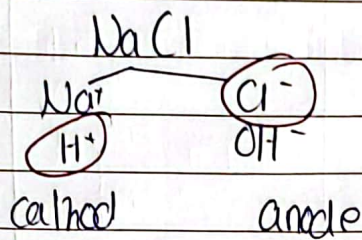 NaCl
Na⁺ Cl⁻
H⁺ OH⁻
cathod anode